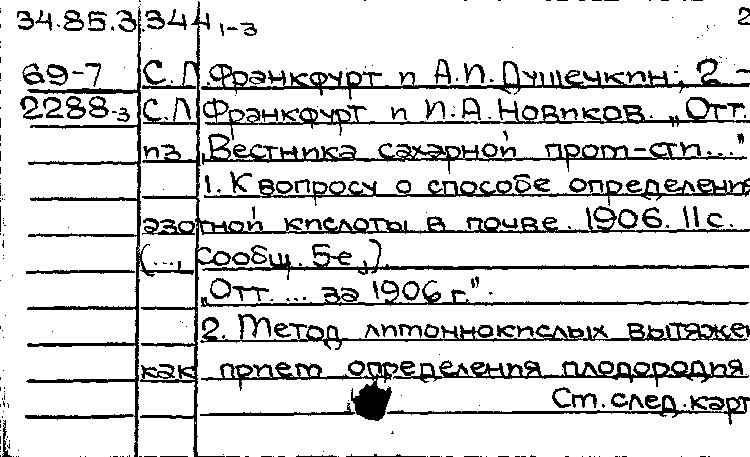 34.85.3.344₁₋₃ 2
69-7 С.Л. Франкфурт и А.И. Душечкин, 2 -
2288-3 С.Л. Франкфурт и И.А. Новиков. „Отт.
из „Вестника сахарной пром-сти..."
1. К вопросу о способе определени
азотной кислоты в почве. 1906. 11 с.
(..., сообщ. 5-е,)
„Отт. ... за 1906 г.".
2. Метод лимоннокислых вытяже
как прием определения плодородия
См. след. карт